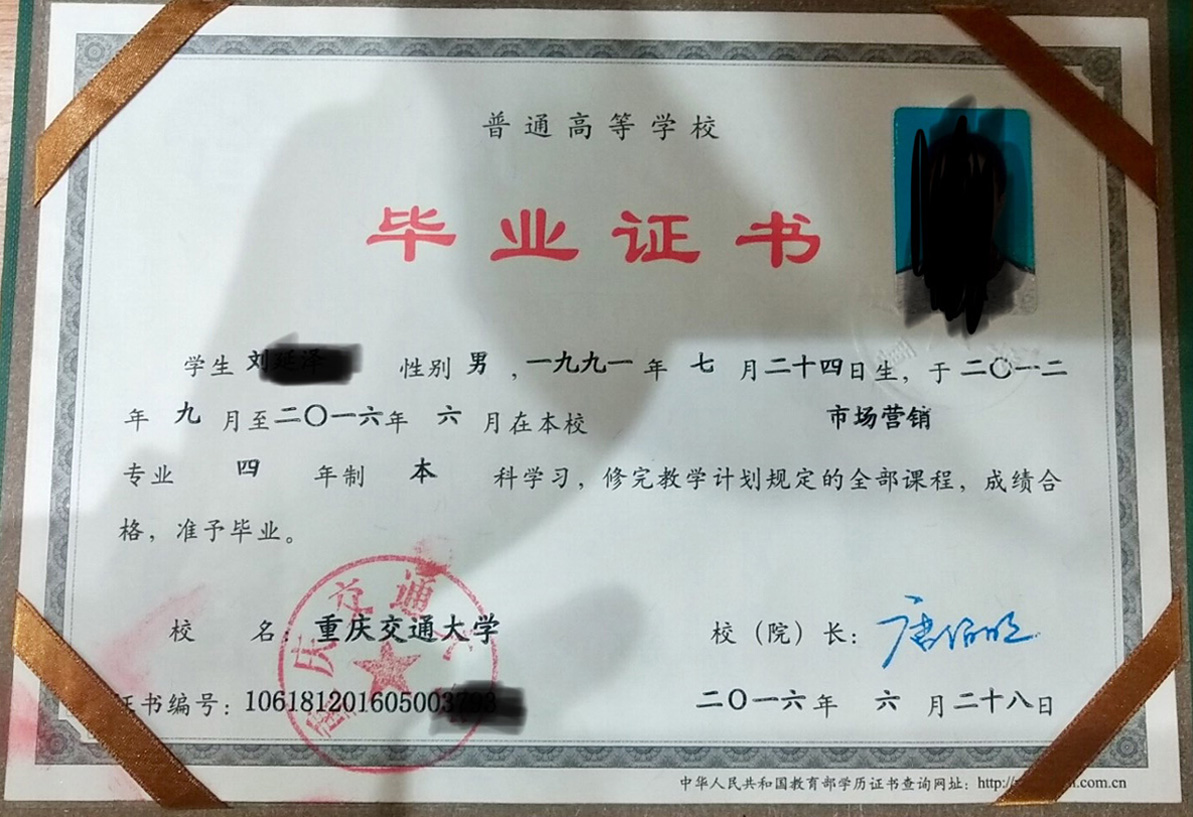 普通高等学校
毕业证书
学生 刘 性别 男 ,一九九一 年 七 月二十四日生，于 二〇一二
年 九 月至二〇一六年 六 月在本校 市场营销
专业 四 年制 本 科学习，修完教学计划规定的全部课程，成绩合
格，准予毕业。
庆 交 通
校 名：重庆交通大学 校（院）长：唐伯明
证书编号：106181201605003 二〇一六 年 六 月二十八日
中华人民共和国教育部学历证书查询网址：http:// .com.cn